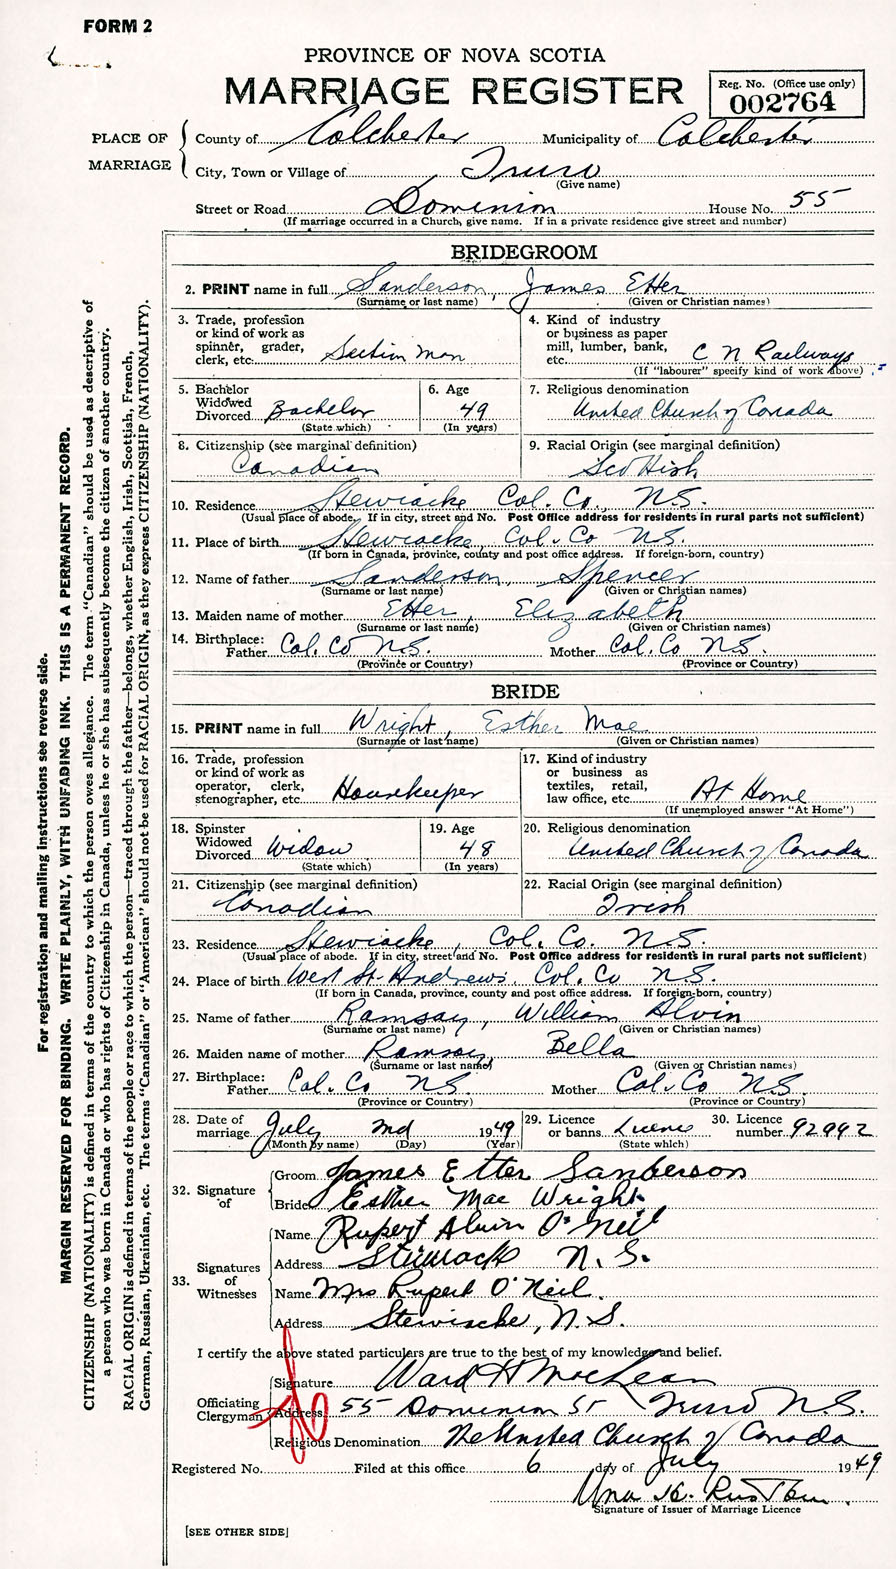 FORM 2
PROVINCE OF NOVA SCOTIA
MARRIAGE REGISTER
Reg. No. (Office use only)
002764
PLACE OF MARRIAGE
County of Colchester Municipality of Colchester
City, Town or Village of Truro
(Give name)
Street or Road Dominion House No. 55
(If marriage occurred in a Church, give name. If in a private residence give street and number)
BRIDEGROOM
2. PRINT name in full Sanderson, James Etter
(Surname or last name) (Given or Christian names)
3. Trade, profession
or kind of work as
spinner, grader,
clerk, etc. Section Man
4. Kind of industry
or business as paper
mill, lumber, bank,
etc. C N Railways
(If "labourer" specify kind of work above)
5. Bachelor
Widowed
Divorced Bachelor
(State which)
6. Age
49
(In years)
7. Religious denomination
United Church of Canada
8. Citizenship (see marginal definition)
Canadian
9. Racial Origin (see marginal definition)
Scottish
10. Residence Stewiacke Col. Co., N.S.
(Usual place of abode. If in city, street and No. Post Office address for residents in rural parts not sufficient)
11. Place of birth Stewiacke, Col. Co N.S.
(If born in Canada, province, county and post office address. If foreign-born, country)
12. Name of father Sanderson, Spencer
(Surname or last name) (Given or Christian names)
13. Maiden name of mother Etter, Elizabeth
(Surname or last name) (Given or Christian names)
14. Birthplace:
Father Col. Co N.S. Mother Col. Co N.S.
(Province or Country) (Province or Country)
BRIDE
15. PRINT name in full Wright, Esther Mae
(Surname or last name) (Given or Christian names)
16. Trade, profession
or kind of work as
operator, clerk,
stenographer, etc. Housekeeper
17. Kind of industry
or business as
textiles, retail,
law office, etc. At Home
(If unemployed answer "At Home")
18. Spinster
Widowed
Divorced Widow
(State which)
19. Age
48
(In years)
20. Religious denomination
United Church of Canada
21. Citizenship (see marginal definition)
Canadian
22. Racial Origin (see marginal definition)
Irish
23. Residence Stewiacke, Col. Co. N.S.
(Usual place of abode. If in city, street and No. Post Office address for residents in rural parts not sufficient)
24. Place of birth West St. Andrews, Col. Co N.S.
(If born in Canada, province, county and post office address. If foreign-born, country)
25. Name of father Ramsay, William Alvin
(Surname or last name) (Given or Christian names)
26. Maiden name of mother Ramsay, Bella
(Surname or last name) (Given or Christian names)
27. Birthplace:
Father Col. Co N.S. Mother Col. Co N.S.
(Province or Country) (Province or Country)
28. Date of
marriage July 2nd 1949
(Month by name) (Day) (Year)
29. Licence
or banns Licence
(State which)
30. Licence
number 92992
32. Signature of
Groom James Etter Sanderson
Bride Esther Mae Wright
33. Signatures of Witnesses
Name Rupert Alvin O'Neil
Address Stewiacke N.S.
Name Mrs Rupert O'Neil.
Address Stewiacke, N.S.
I certify the above stated particulars are true to the best of my knowledge and belief.
Officiating Clergyman
Signature Ward H MacLean
Address 55 Dominion St Truro N.S.
Religious Denomination The United Church of Canada
Registered No. Filed at this office 6 day of July 1949
Una H.
Signature of Issuer of Marriage Licence
[SEE OTHER SIDE]
For registration and mailing instructions see reverse side.
MARGIN RESERVED FOR BINDING. WRITE PLAINLY, WITH UNFADING INK. THIS IS A PERMANENT RECORD.
CITIZENSHIP (NATIONALITY) is defined in terms of the country to which the person owes allegiance. The term "Canadian" should be used as descriptive of
a person who was born in Canada or who has rights of Citizenship in Canada, unless he or she has subsequently become the citizen of another country.
RACIAL ORIGIN is defined in terms of the people or race to which the person—traced through the father—belongs, whether English, Irish, Scottish, French,
German, Russian, Ukrainian, etc. The terms "Canadian" or "American" should not be used for RACIAL ORIGIN, as they express CITIZENSHIP (NATIONALITY).